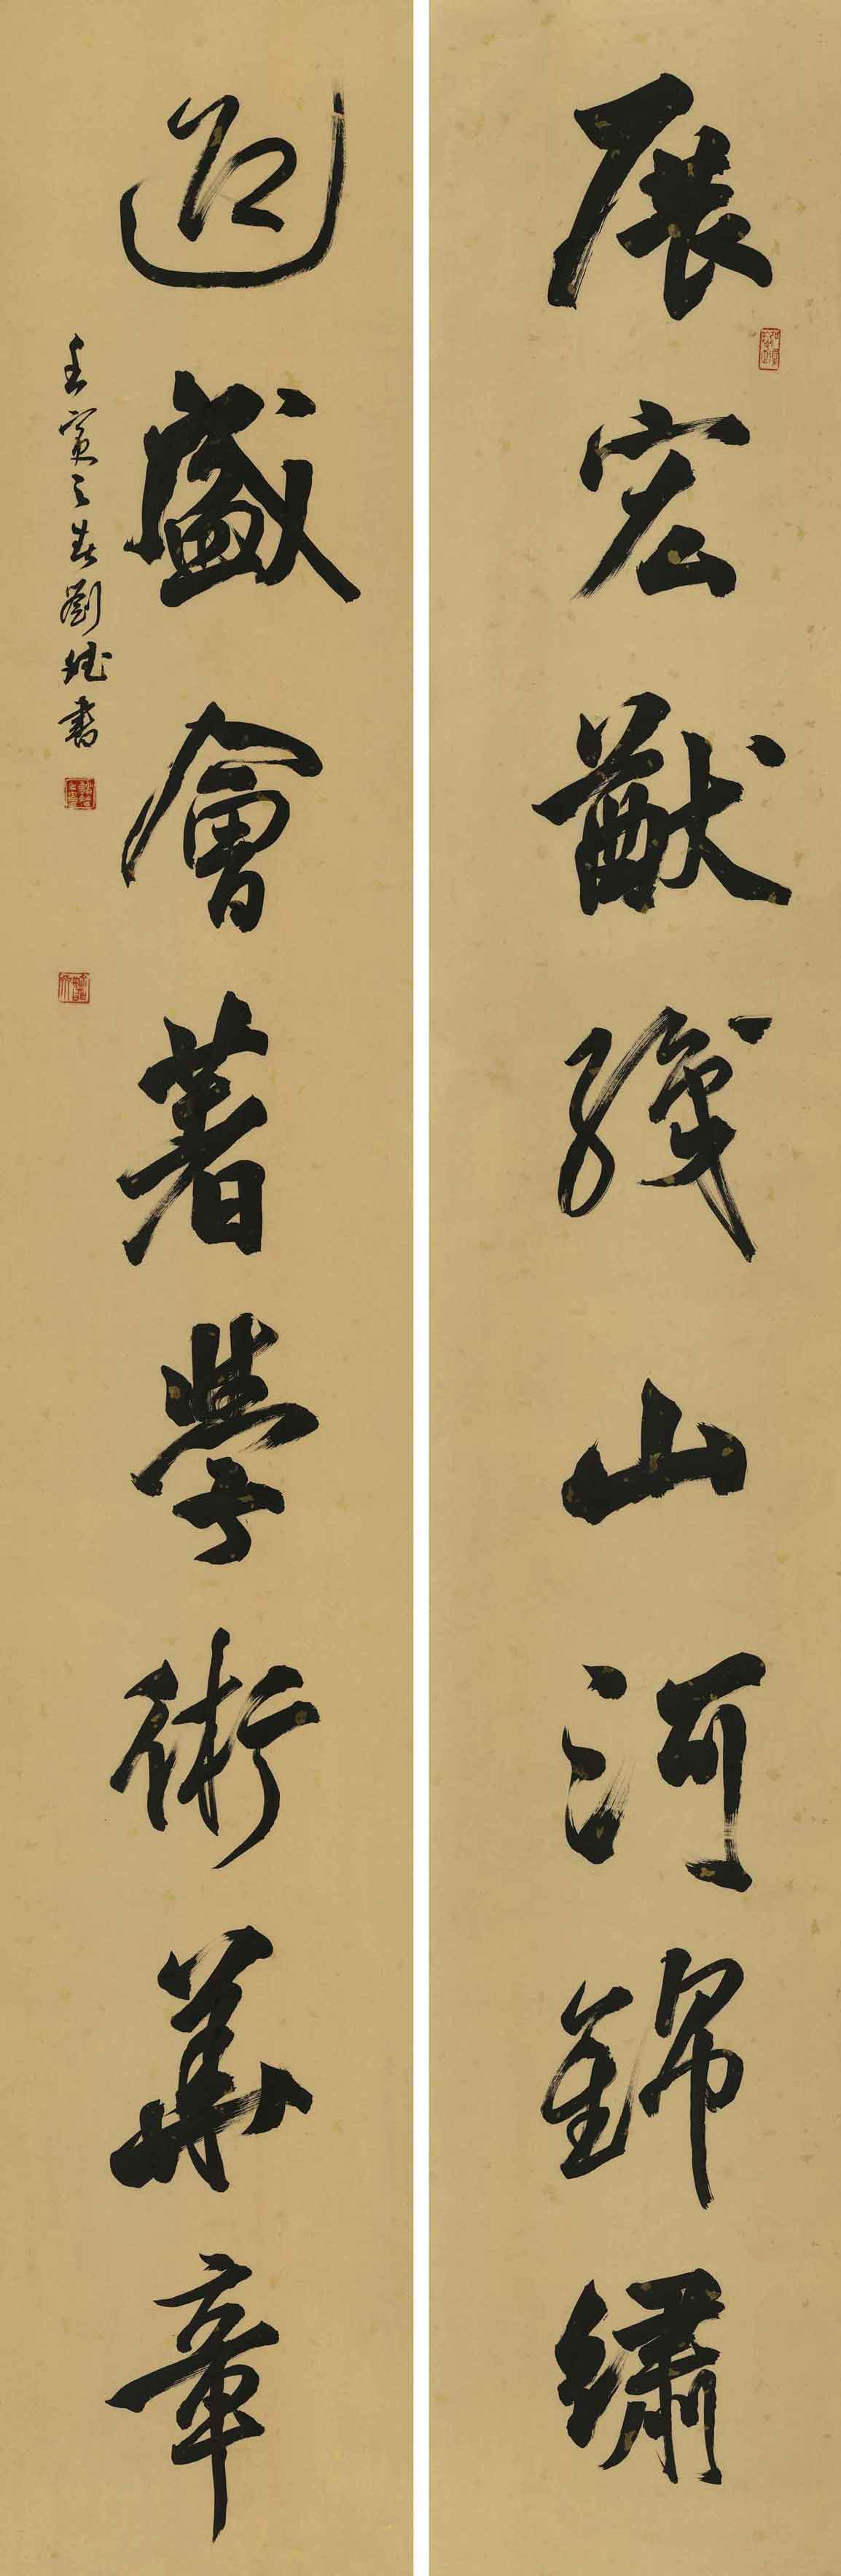 展宏猷織山河錦繡
迎盛會著學術華章
壬寅之春劉斌書